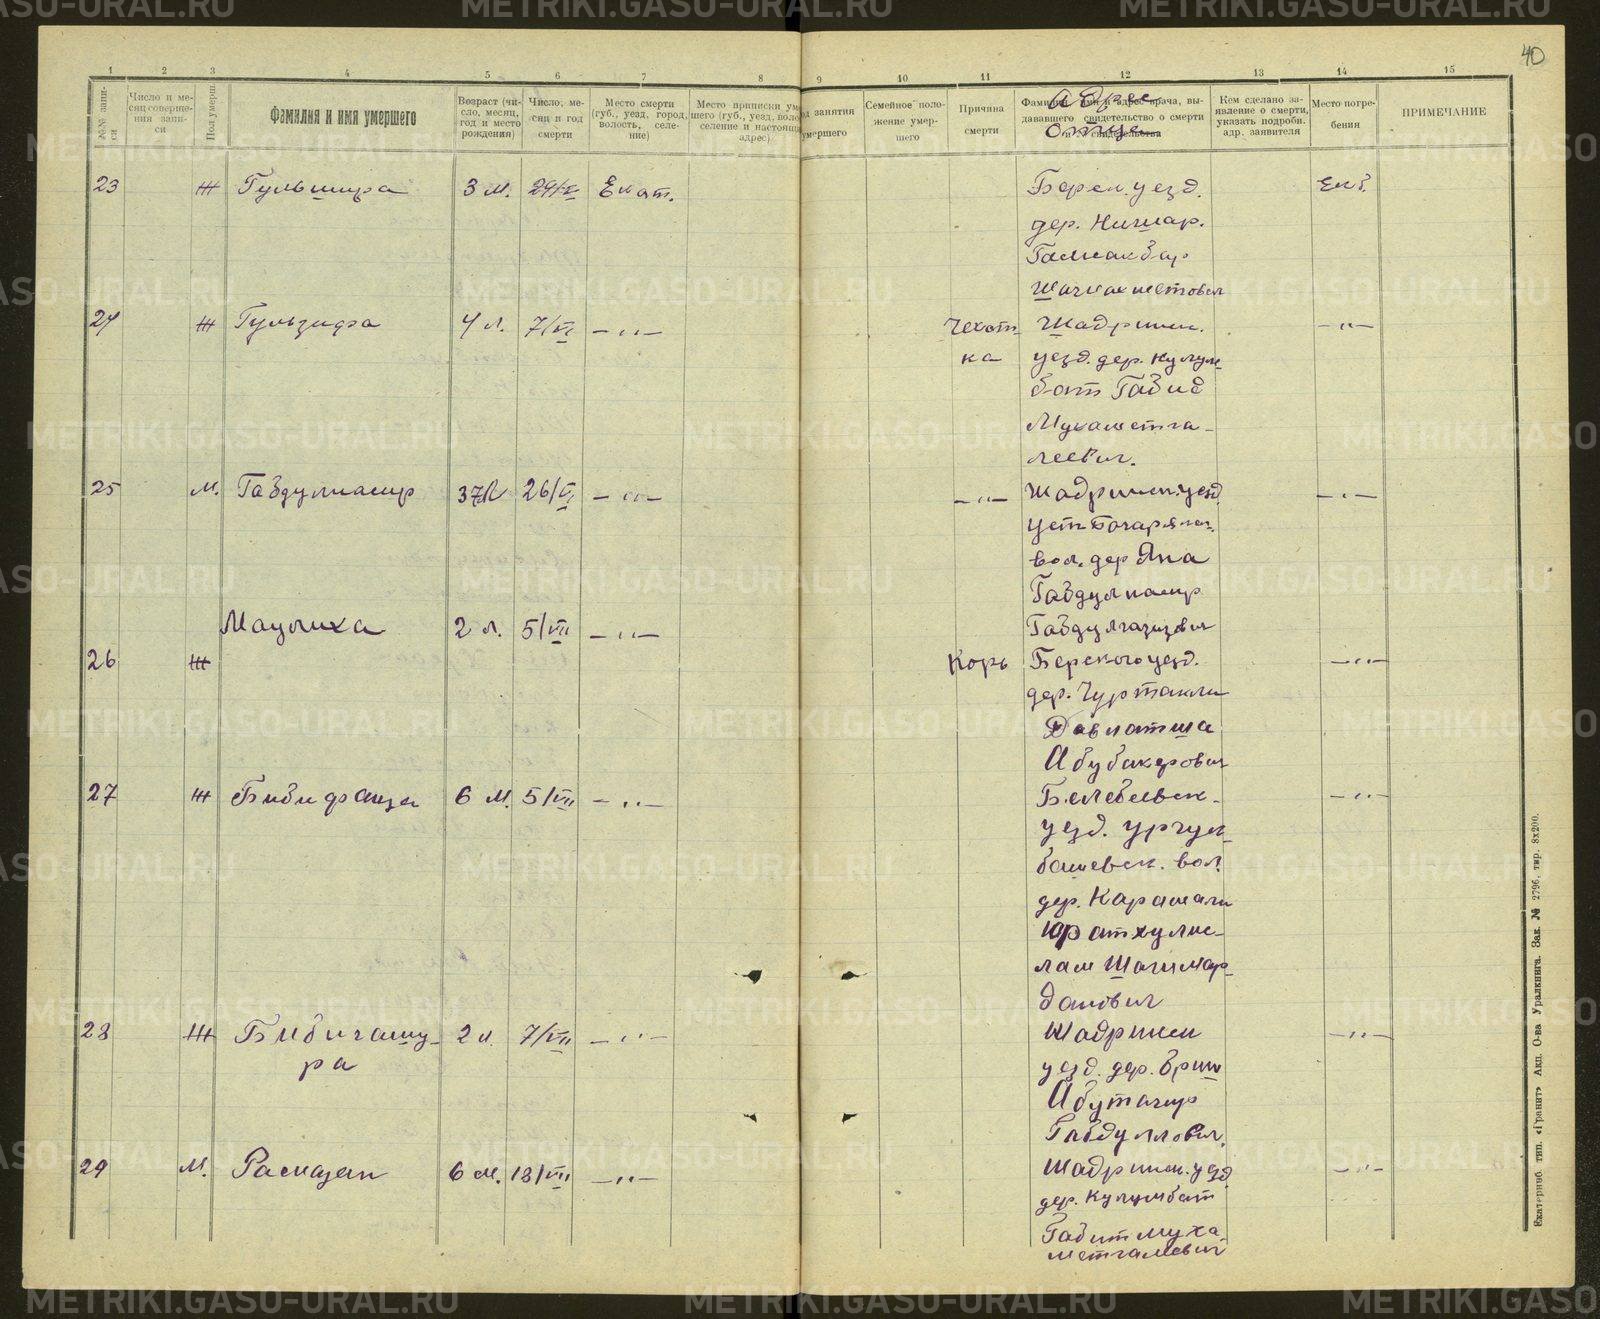 40
1 2 3 4 5 6 7 8 9 10 11 12 13 14 15
№№ записи
Число и месяц совершения записи
Пол умерш.
Фамилия и имя умершего
Возраст (число, месяц, год и место рождения)
Число, месяц и год смерти
Место смерти (губ., уезд, город, волость, селение)
Место приписки умершего (губ., уезд, волость, селение и настоящ. адрес)
занятия умершего
Семейное положение умершего
Причина смерти
Адрес отца
Кем сделано заявление о смерти, указать подробн. адр. заявителя
Место погребения
ПРИМЕЧАНИЕ
23 Ж Гульшира 3 м. Екат. Екб.
Берск. уезд.
дер.
Галиакбар
Шагиахметович
24 Ж Гульзифа 4 л. 7/VI —"— Чехот- Шадринск. —"—
ка уезд. дер. Кулум-
бат Габид
Мухаметга-
леевич.
25 М. Габдулнасыр 37 л 26/VI —"— —"— Шадринск. уезд. —"—
вол. дер Яна
Габдулнасыр
Маулиха 2 л. 5/VII —"— Габдулгазизович
26 Ж Корь Берского уезд. —"—
дер. Чуртакли
Давлатша
Абубакерович
27 Ж Бибифаиза 6 м. 5/VII —"— Белебеевск- —"—
уезд. ургул-
башевск. вол.
дер. Карамали
лам Шагимар-
данович
28 Ж Бибигаму- 2 л. 7/VII —"— Шадринск —"—
ра уезд. дер.
Абутагир
Габдуллович.
29 М. Рамазан 6 м. 13/VII —"— Шадринск. уезд —"—
дер. Кулумбат
Габит Муха-
метгалеевич
Екатеринб. тип. «Гранит» Акп. О-ва Уралкнига. Зак. № 2796, тир. 8x200.
METRIKI.GASO-URAL.RU